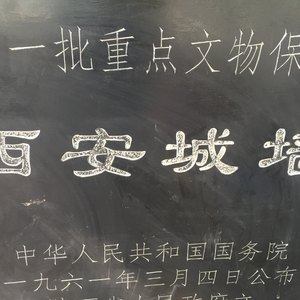 一批重点文物保
西安城墙
中华人民共和国国务院
一九六一年三月四日公布